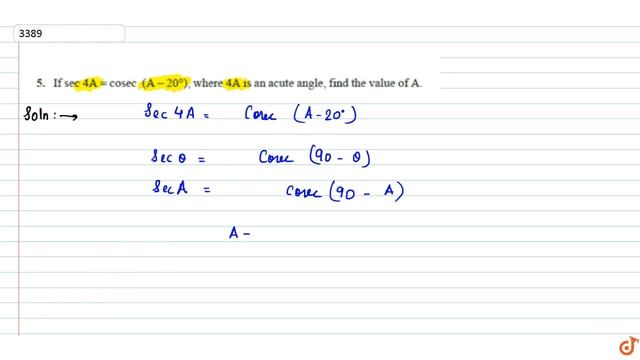 3389
5. If sec 4A = cosec (A – 20°), where 4A is an acute angle, find the value of A.
Soln :→ Sec 4A = Cosec (A - 20°)
Sec θ = Cosec (90 - θ)
Sec A = Cosec (90 - A)
A -